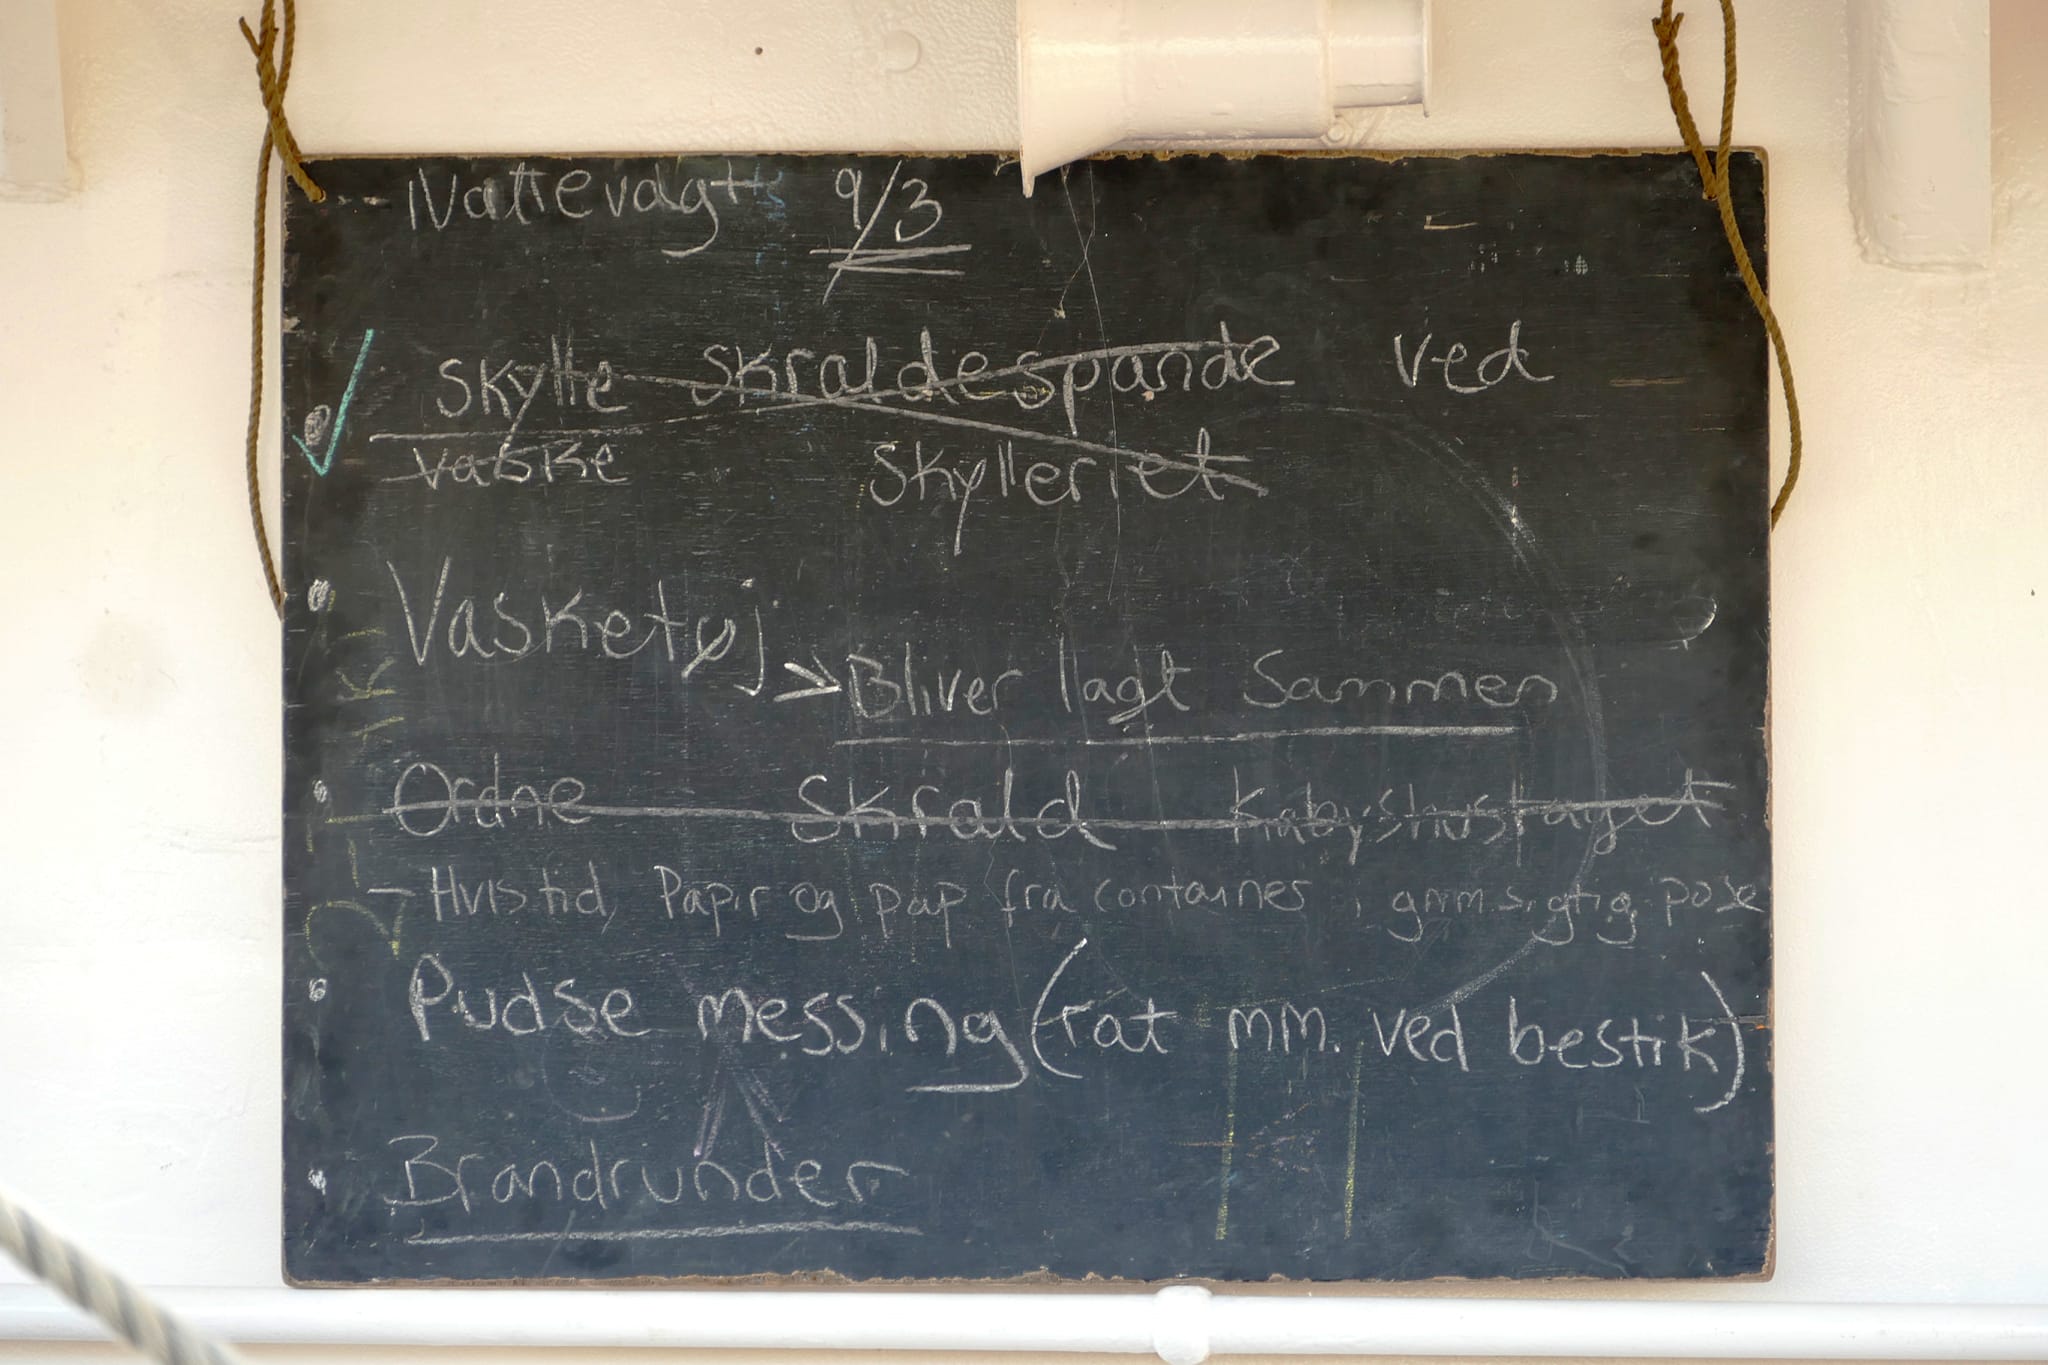 Nattevagt 9/3
Skylle skraldespande ved
vaske Skylleriet
Vasketøj
→ Bliver lagt Sammen
Ordne Skrald Kabyshustaget
- Hvis tid, Papir og pap fra container i gnmsigtig pose
Pudse messing (rat mm. ved bestik)
Brandrunder